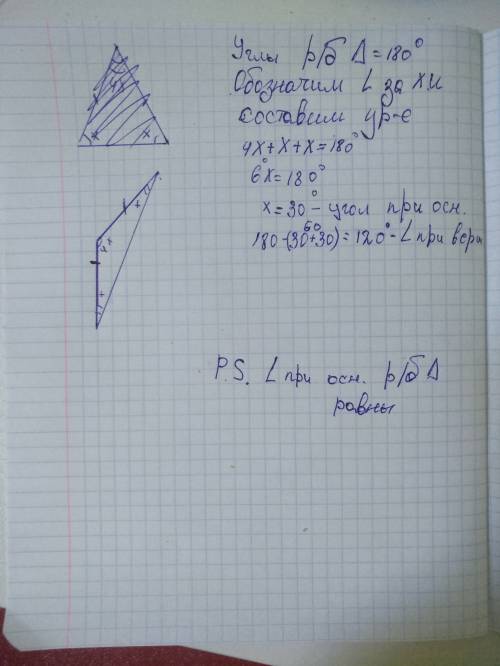 4x
x x
Углы р/б Δ = 180°
Обозначим L за x и
составим ур-е
4x+x+x=180°
6x=180°
x=30° - угол при осн.
60
180-(30+30)=120° - L при верш
x
4x
x
P.S. L при осн. р/б Δ
равны